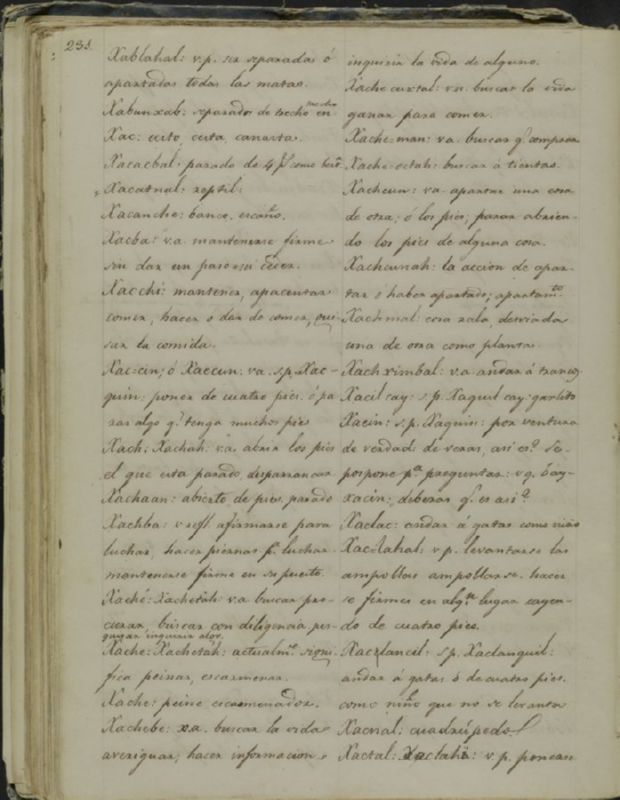 231.
Xablahal: v.p. ser separadas ó
apartadas todas las matas.
Xabunxab: separados de trecho en
trecho
Xac: cesto, cesta, canasta.
Xacacbal: parado de 4 p.s como
Xacatnal: reptil:
Xacanche: banco, escaño.
Xacba: v.a. mantenerse firme
sin dar un paso ni ceder.
Xacchi: mantener, apacentar
comer, hacer o dar de comer, gui-
sar la comida.
Xac-cin; ó Xaccun. va. s.p. Xac-
quin: poner de cuatro pies. ó pa
rar algo q.e tenga muchos pies
Xach: Xachah: v.a. abrir los pies
el que esta parado, desparrancar
Xachaan: abierto de pies, parado
Xachba: v refl. afirmarse para
luchar, hacer piernas p.a luchar.
mantenerse firme en su puesto.
Xaché: Xachetah: v.a buscar pro-
curar, buscar con diligencia, pes-
quizar, inquirir algo.
Xache: Xachetah: actualm.te signi-
fica peinar, escarmenar.
Xache: peine escarmenador.
Xachebe: v.a. buscar la vida
averiguar, hacer informacion e
inquirir la vida de alguno.
Xache cuxtal: v.n. buscar la vida
ganar para comer.
Xache-man: va. buscar q.e comprar
Xache-octah: buscar á tientas.
Xachcun: va. apartar una cosa
de otra; ó los pies; parar abrien-
do los pies de alguna cosa.
Xachcunah: la accion de apar-
tar ó haber apartado; apartam.to
Xachmal: cosa rala, desviada
una de otra como plantas.
Xach ximbal: v.a. andar á trancos
Xacil cay: s.p. Xaquil cay: garlito
Xacin: s.p. Xaquin: por ventura
de verdad: de veras, asi es? Se-
pospone p.a preguntar: v.g. bay-
xacin; deberas q.e es asi?
Xaclac: andar á gatas como niño
Xaclahal: v p. levantarse las
ampollas ampollarse. hacer
se firmes en alg.n lugar cayen-
do de cuatro pies.
Xaclancil: s.p. Xaclanquil:
andar á gatas ó de cuatro pies.
como niño que no se levanta
Xacnal: cuadrúpedo
Xactal: Xaclahi: v. p. ponerse